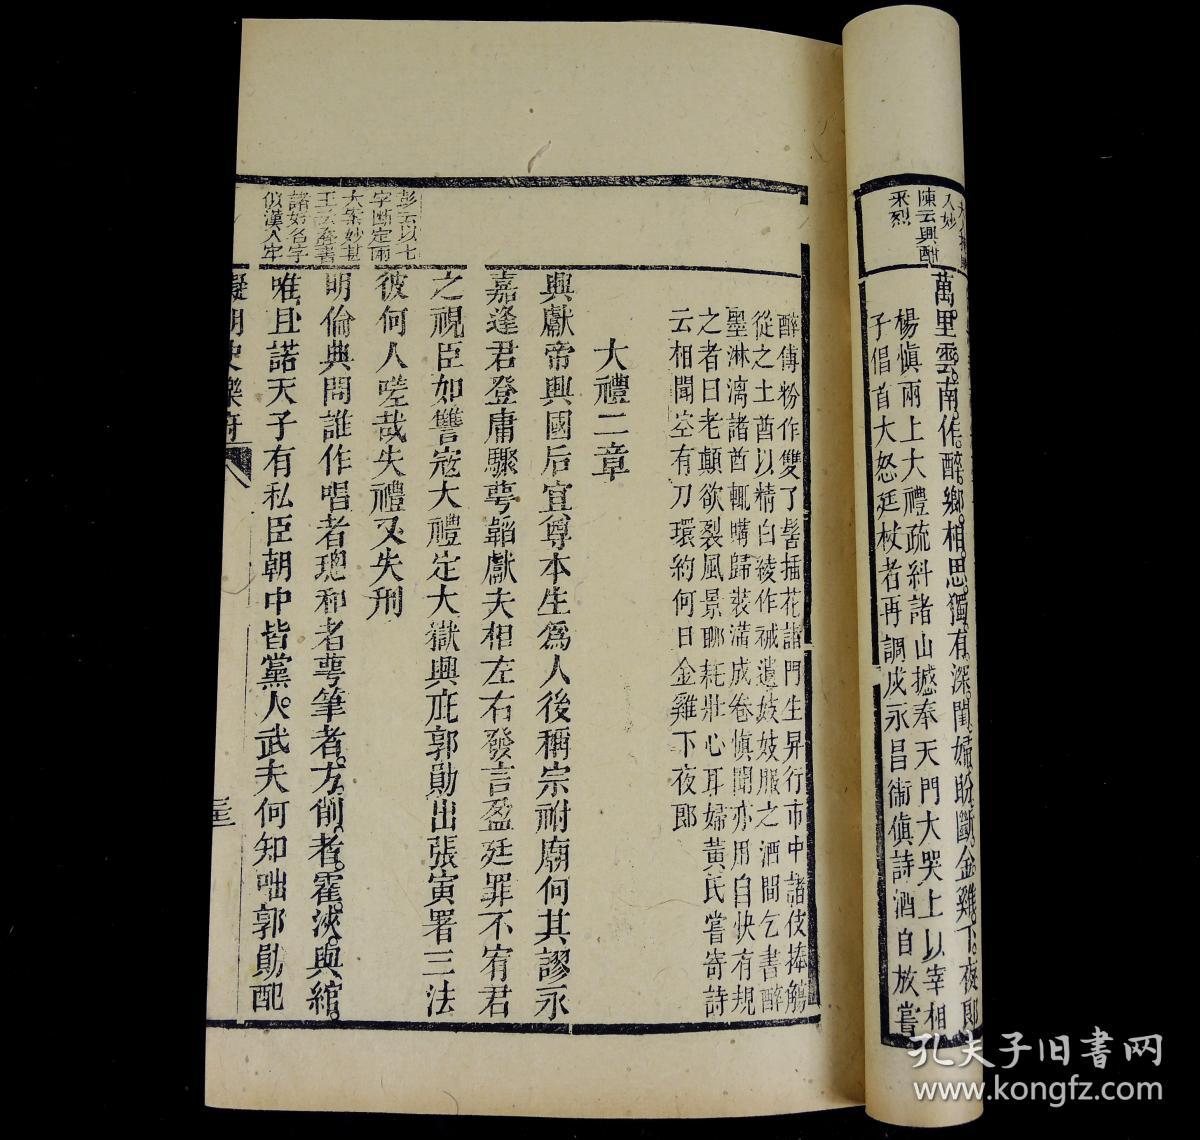 人妙
陳云興酣
采烈
萬里雲南作醉鄉相思獨有深閨婦盼斷金雞下夜郎
楊慎兩上大禮疏糾諸山撼奉天門大哭上以宰相
子倡首大怒廷杖者再謫戍永昌衞慎詩酒自放嘗
醉傅粉作雙丫髻插花諸門生舁行市中諸伎捧觴
從之土酋以精白綾作裓遺妓妓服之酒間乞書醉
墨淋漓諸酋輒購歸裝潢成卷慎聞亦用自快有規
之者曰老顛欲裂風景聊耗壯心耳婦黃氏嘗寄詩
云相聞空有刀環約何日金雞下夜郎
大禮二章
興獻帝興國后宜尊本生爲人後稱宗祔廟何其謬永
嘉逢君登庸驟萼韜獻夫相左右發言盈廷罪不宥君
之視臣如讐寇大禮定大獄興庇郭勛出張寅署三法
彼何人嗟哉失禮又失刑
彭云以七
字斷定兩
大案妙甚
王云叠書
諸姓名字
倣漢人牢
明倫典問誰作唱者璁和者萼筆者方削者霍浹與綰
唯且諾天子有私臣朝中皆黨人武夫何知咄郭勛配
擬明史樂府
孔夫子旧書网
www.kongfz.com